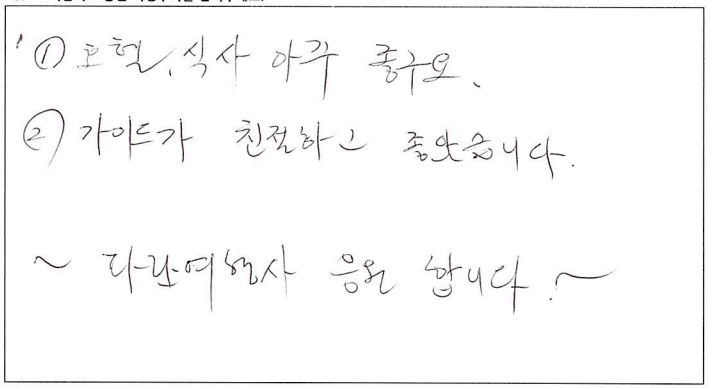 ① 호텔, 식사 아주 좋구요.
② 가이드가 친절하고 좋았습니다.
~ 다른여행사 응원 합니다.~